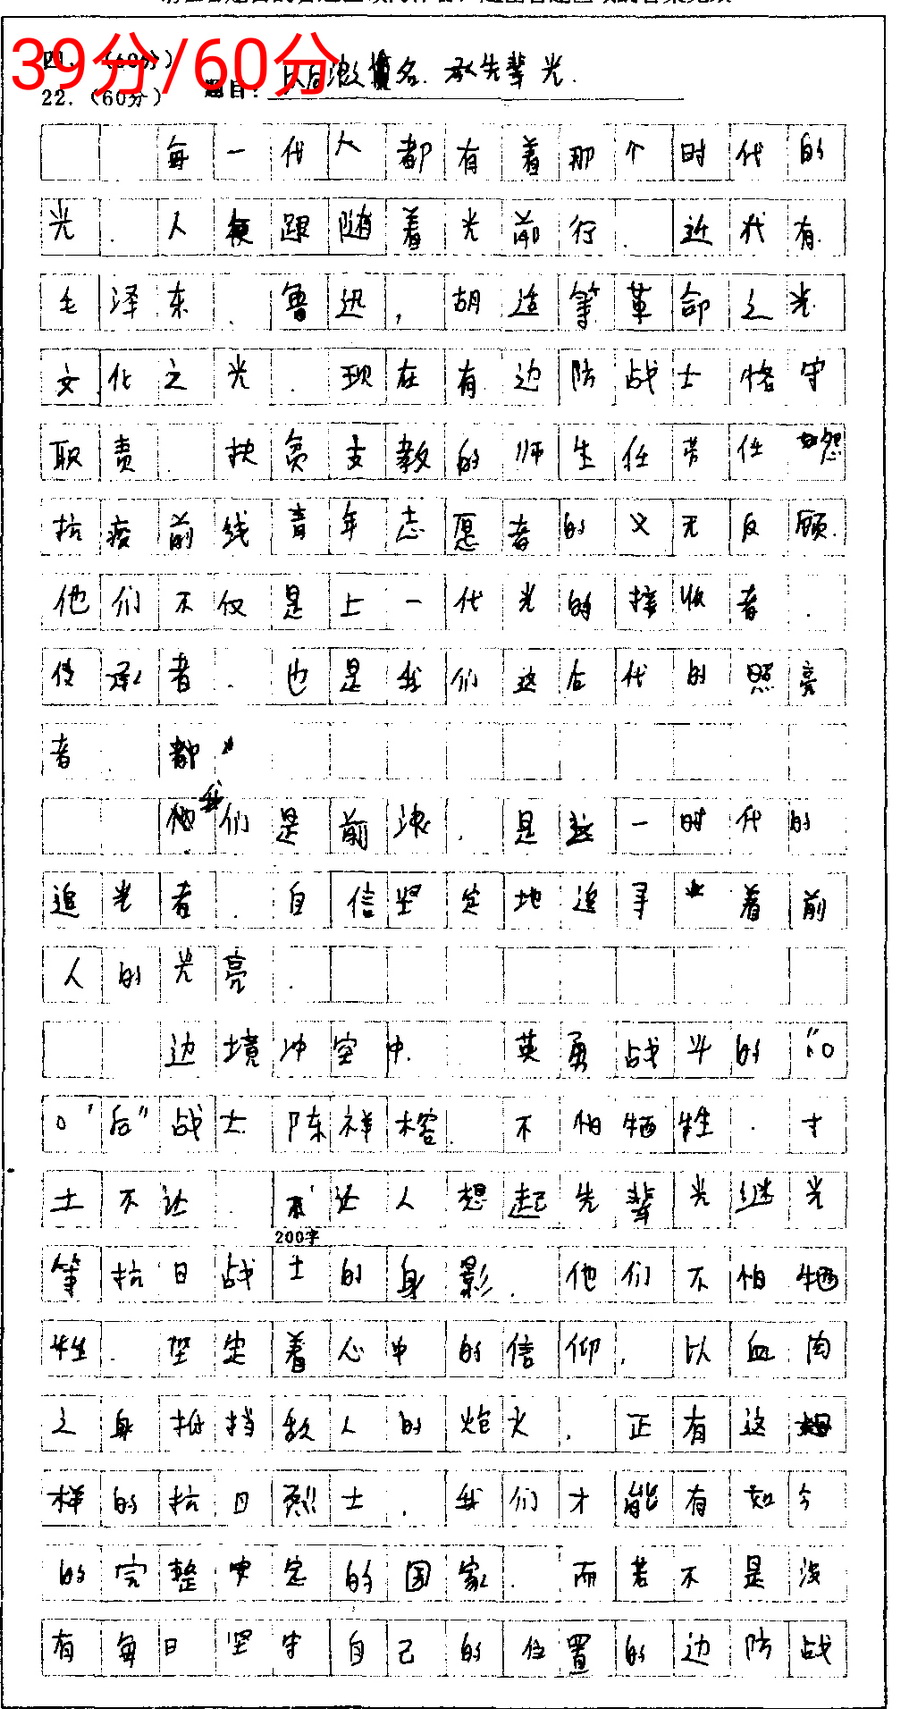 39分/60分
四、（60分）
22.（60分） 题目：以后浪之名，承先辈光。
每一代人都有着那个时代的
光，人便跟随着光前行，近代有
毛泽东、鲁迅，胡适等革命之光
文化之光，现在有边防战士恪守
职责，扶贫支教的师生任劳任怨
抗疫前线青年志愿者的义无反顾.
他们不仅是上一代光的接收者，
传承者，也是我们这后代的照亮
者，都
我们是前浪，是这一时代的
追光者，自信坚定地追寻着前
人的光亮.
边境冲突中，英勇战斗的“00
0'后”战士陈祥榕，不怕牺牲，寸
土不让，不让人想起先辈光继光
200字
等抗日战士的身影，他们不怕牺
牲，坚定着心中的信仰，以血肉
之身抵挡敌人的炮火，正有这
样的抗日烈士，我们才能有如今
的完整安定的国家，而若不是没
有每日坚守自己的位置的边防战